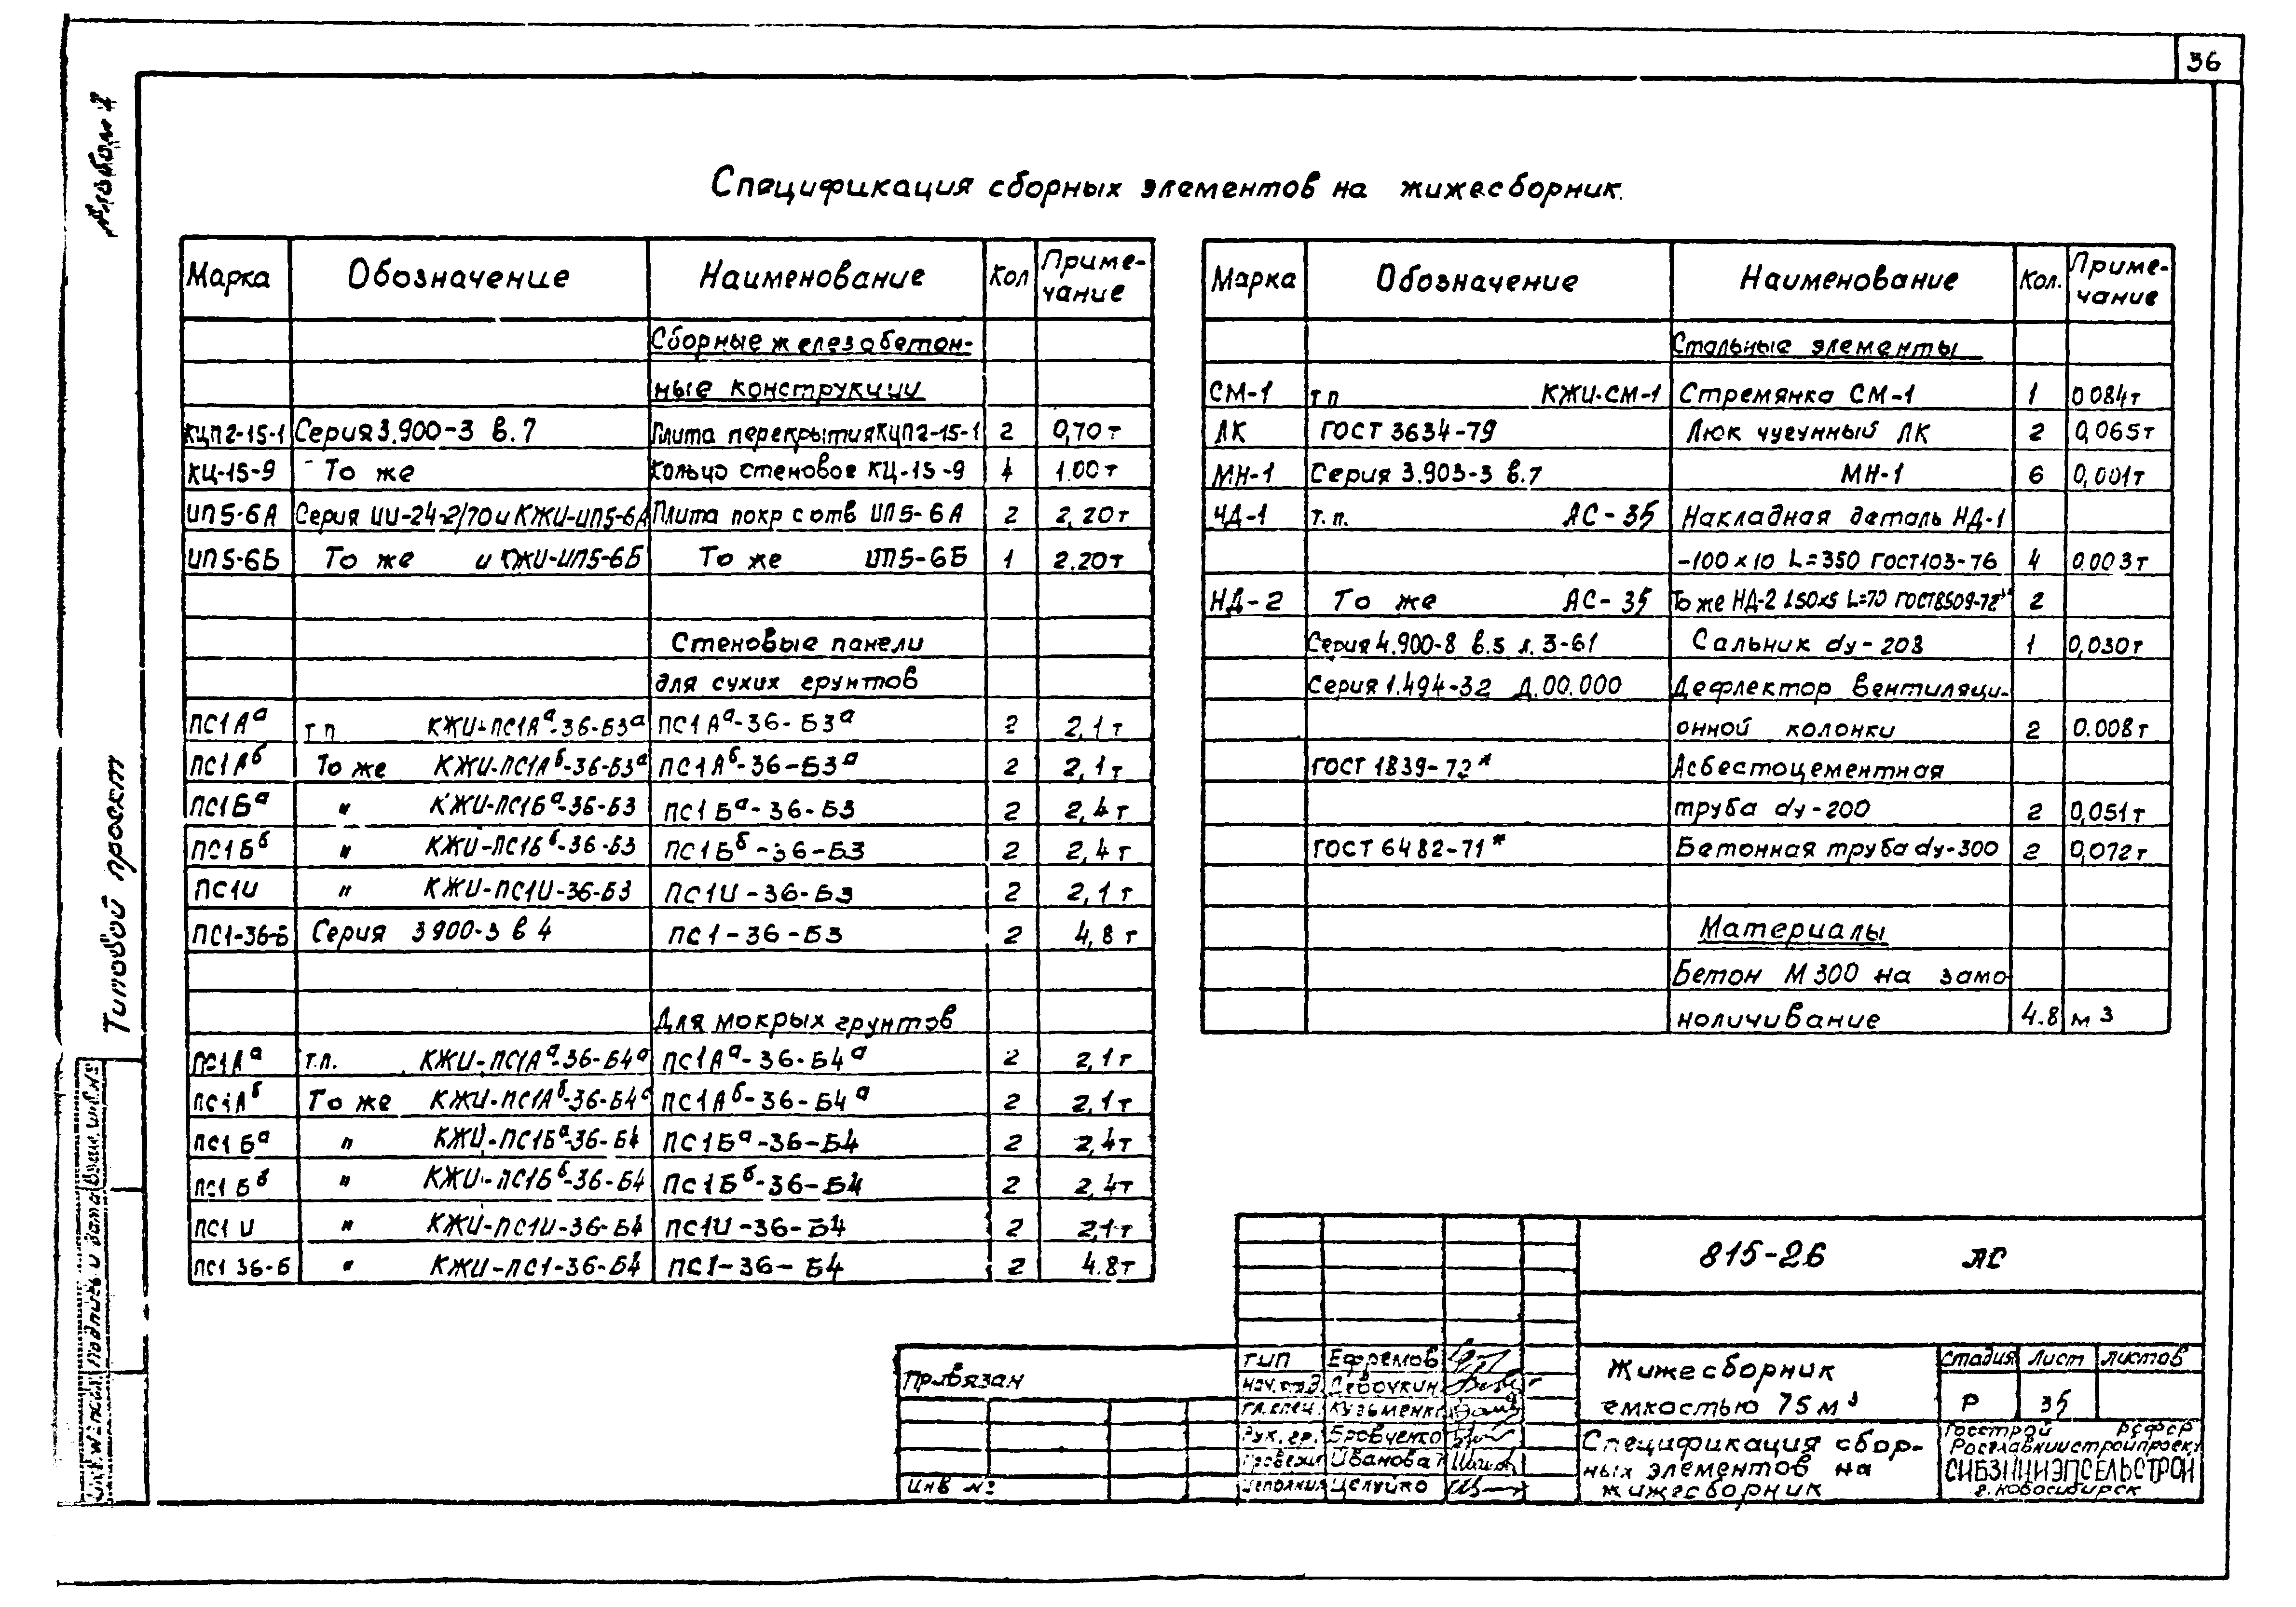 36
Альбом 2
Типовой проект
Спецификация сборных элементов на жижесборник.
Марка Обозначение Наименование Кол Приме-
чание
Сборные железобетон-
ные конструкции
КЦП2-15-1 Серия 3.900-3 в.7 Плита перекрытия КЦП2-15-1 2 0,70т
КЦ-15-9 То же Кольцо стеновое КЦ-15-9 4 1.00т
ИП5-6А Серия ИИ-24-2/70 и КЖИ-ИП5-6А Плита покр с отв ИП5-6А 2 2,20т
ИП5-6Б То же и КЖИ-ИП5-6Б То же ИП5-6Б 1 2.20т
Стеновые панели
для сухих грунтов
ПС1Аᵃ т п КЖИ-ПС1Аᵃ-36-Б3ᵃ ПС1Аᵃ-36-Б3ᵃ 2 2,1т
ПС1Аᵇ То же КЖИ-ПС1Аᵇ-36-Б3ᵃ ПС1Аᵇ-36-Б3ᵃ 2 2,1т
ПС1Бᵃ " КЖИ-ПС1Бᵃ-36-Б3 ПС1Бᵃ-36-Б3 2 2,4т
ПС1Бᵇ " КЖИ-ПС1Бᵇ-36-Б3 ПС1Бᵇ-36-Б3 2 2,4т
ПС1И " КЖИ-ПС1И-36-Б3 ПС1И-36-Б3 2 2,1т
ПС1-36-Б Серия 3900-3 в 4 ПС1-36-Б3 2 4,8т
Для мокрых грунтов
ПС1Аᵃ т.п. КЖИ-ПС1Аᵃ-36-Б4ᵃ ПС1Аᵃ-36-Б4ᵃ 2 2,1т
ПС1Аᵇ То же КЖИ-ПС1Аᵇ-36-Б4ᵃ ПС1Аᵇ-36-Б4ᵃ 2 2,1т
ПС1Бᵃ " КЖИ-ПС1Бᵃ-36-Б4 ПС1Бᵃ-36-Б4 2 2,4т
ПС1Бᵇ " КЖИ-ПС1Бᵇ-36-Б4 ПС1Бᵇ-36-Б4 2 2,4т
ПС1И " КЖИ-ПС1И-36-Б4 ПС1И-36-Б4 2 2,1т
ПС1 36-Б " КЖИ-ПС1-36-Б4 ПС1-36-Б4 2 4.8т
Марка Обозначение Наименование Кол. Приме-
чание
Стальные элементы
СМ-1 т п КЖИ-СМ-1 Стремянка СМ-1 1 0 084т
ЛК ГОСТ 3634-79 Люк чугунный ЛК 2 0,065т
МН-1 Серия 3.903-3 в.7 МН-1 6 0,001т
НД-1 т.п. АС-35 Накладная деталь НД-1
-100×10 L=350 ГОСТ103-76 4 0.003т
НД-2 То же АС-35 То же НД-2 L50×5 L=70 ГОСТ8509-72* 2
Серия 4.900-8 в.5 л.3-61 Сальник dу-208 1 0,030т
Серия 1.494-32 Д.00.000 Дефлектор вентиляци-
онной колонки 2 0.008т
ГОСТ 1839-72* Асбестоцементная
труба dу-200 2 0,051т
ГОСТ 6482-71* Бетонная труба dу-300 2 0,072т
Материалы
Бетон М300 на замо
ноличивание 4.8 м3
815-26 АС
Привязан
Инв №
ГИП Ефремов
нач.отд Девочкин
гл.спец. Кузьменко
Рук.гр. Бровченко
Проверил Иванова
Исполнил Целуйко
Жижесборник
емкостью 75м³
Стадия Лист Листов
Р 35
Спецификация сбор-
ных элементов на
жижесборник
Госстрой РСФСР
Росглавниистройпроект
СИБЗНИИЭПСЕЛЬСТРОЙ
г.Новосибирск
Инв.№ подл Подпись и дата Взам.инв.№